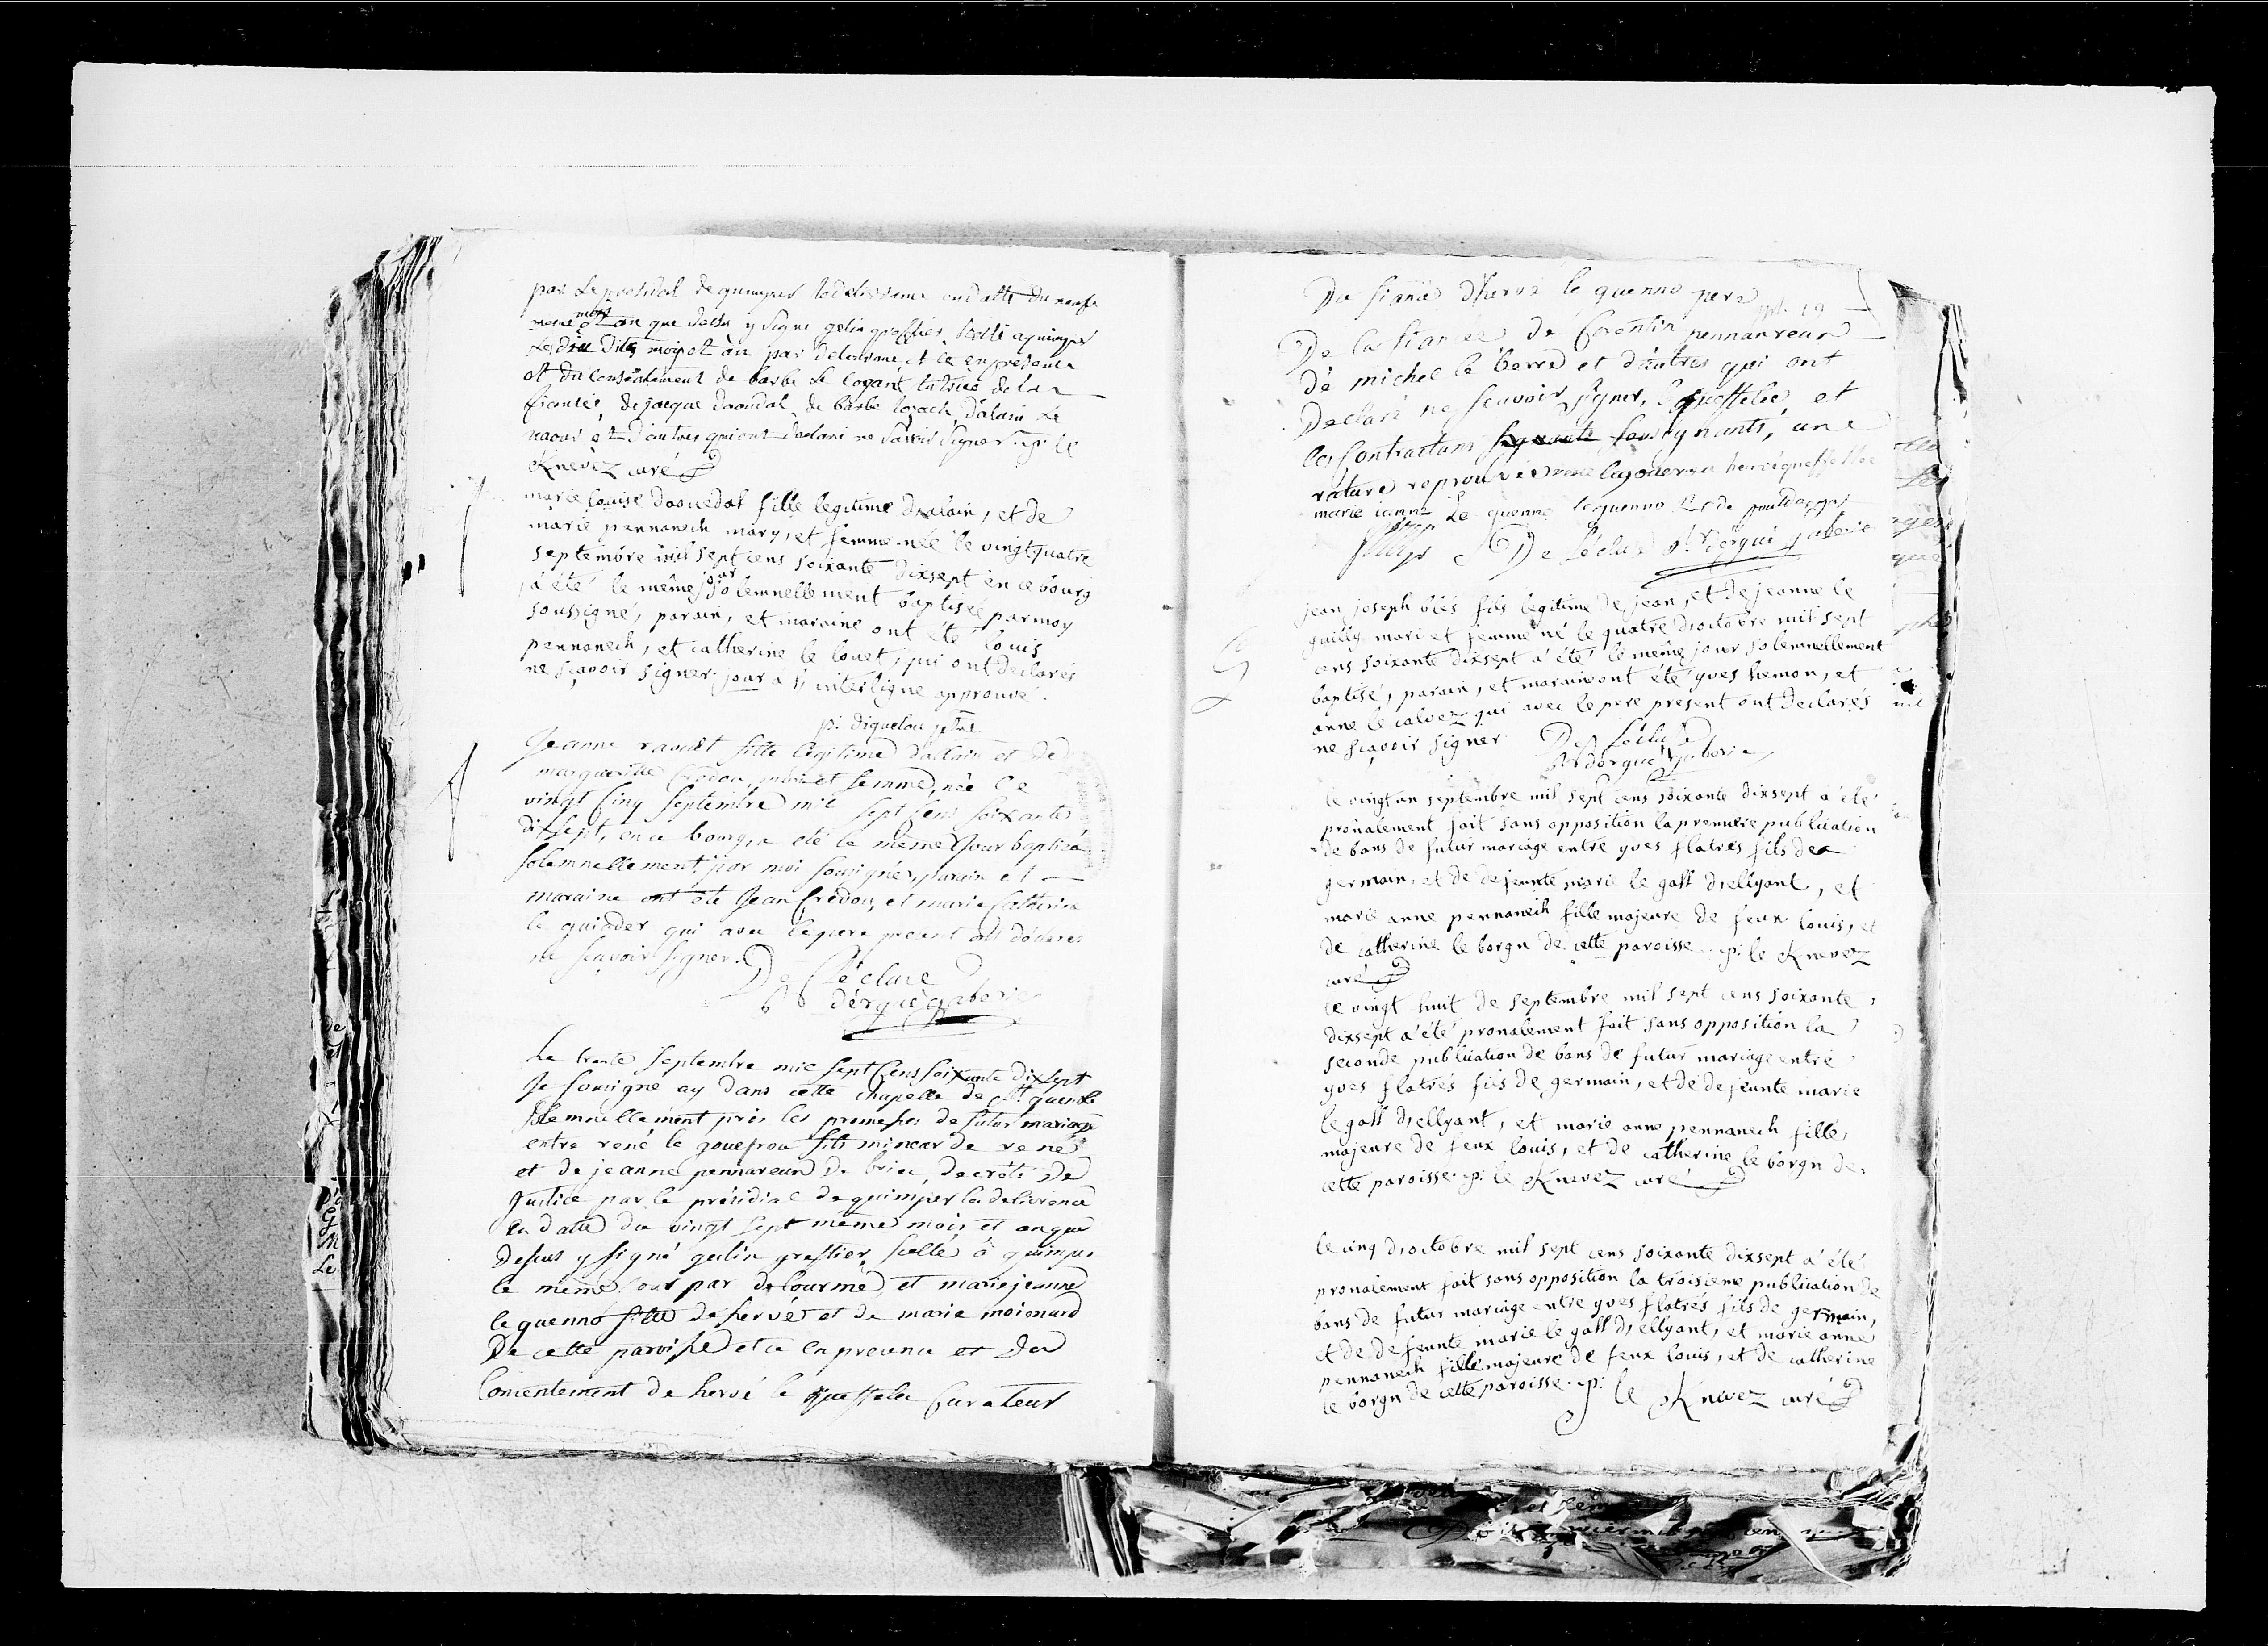 par Le presidial de quimper la delivrance en datte du neufe
meme mois et an que dessu y signe gelin greffier, scelle a quimper
Les dits mois et an par delourme, et ce en presence
et du consentement de barbe Le cogant tutrice de la
fiancée, de jacque daoudal, de barbe lozach, d'alain Le
naour et d'autres qui ont declaré ne savoir signer p: le
Knevez curé
marie louise daouedal fille legitime d'alain, et de
marie pennanech mary, et femme née le vingt quatre
septembre mil sept cens soixante dixsept en ce bourg
a été le même jour solemnellement baptisée par moy
soussigné, parain, et maraine ont été louis
pennanech, et catherine le louet, qui ont declarés
ne sçavoir signer jour à l'interligne approuvé.
p: diquelou ptre
Jeanne ravalt fille legitime d'alain et de
marguerite Credou, mari et femme, née le
vingt Cinq Septembre mil sept Cens soixante
dixsept, en ce bourg, a eté le même Jour baptisé
solemnellement par moi soussigné, parain et
maraine ont été Jean Credou, et marie Catherine
le guinder qui avec le pere present ont déclarés
ne sçavoir signer.
De Lécluse
dérgué gaberic
Le trente septembre mil sept Cens soixante dixsept
Je soussigné ay dans cette chapelle de St. guenolé
solemnellement pris les promesses de futur mariage
entre rené le gouefrou fils mineur de rené
et de jeanne pennareun de briec, decrété de
Justice par le présidial de quimper la delivrance
en datte du vingt sept même mois et an que
dessus y signé gelin greffier, scellé à quimper
le même Jour par delourme, et marie jeanne
le quenno fille de hervé et de marie moienard
De cette paroisse et ce en presence et du
Consentement de hervé le questelec Curateur
Du fiancé d'hervé le quenno pere
De la fiancée de Corentin pennanreun
dé michel le berre et d'autres qui ont
Declaré ne sçavoir signer, le questelec et
les Contractans soussignants, une
rature reprouvée
marie ianne Le quenno le quenno
De Lécluse dérgué gaberic
jean joseph blés fils legitime de jean, et de jeanne le
guilly mari et femme né le quatre d'octobre mil sept
cens soixante dixsept a été le même jour solemnellement
baptisé, parain, et maraine ont été yves hemon, et
anne le calvez qui avec le pere present ont declarés
ne sçavoir signer De Lécluse
dérgué gaberic
le vingt un septembre mil sept cens soixante dixsept a été
pronalement fait sans opposition la premiere publication
de bans de futur mariage entre yves flatrés fils de
germain, et de defeunte marie le gall d'ellyant, et
marie anne pennanech fille majeure de feux louis, et
de catherine le borgn de cette paroisse. p: le Knevez
curé
le vingt huit de septembre mil sept cens soixante
dixsept a été pronalement fait sans opposition la
seconde publication de bans de futur mariage entre
yves flatrés fils de germain, et de defeunte marie
le gall d'ellyant, et marie anne pennanech fille
majeure de feux louis, et de catherine le borgn de
cette paroisse. p: le Knevez curé
le cinq d'octobre mil sept cens soixante dixsept a été
pronalement fait sans opposition la troisieme publication de
bans de futur mariage entre yves flatrés fils de germain,
et de defeunte marie le gall d'ellyant, et marie anne
pennanech fille majeure de feux louis, et de catherine
le borgn de cette paroisse. p: le Knevez curé